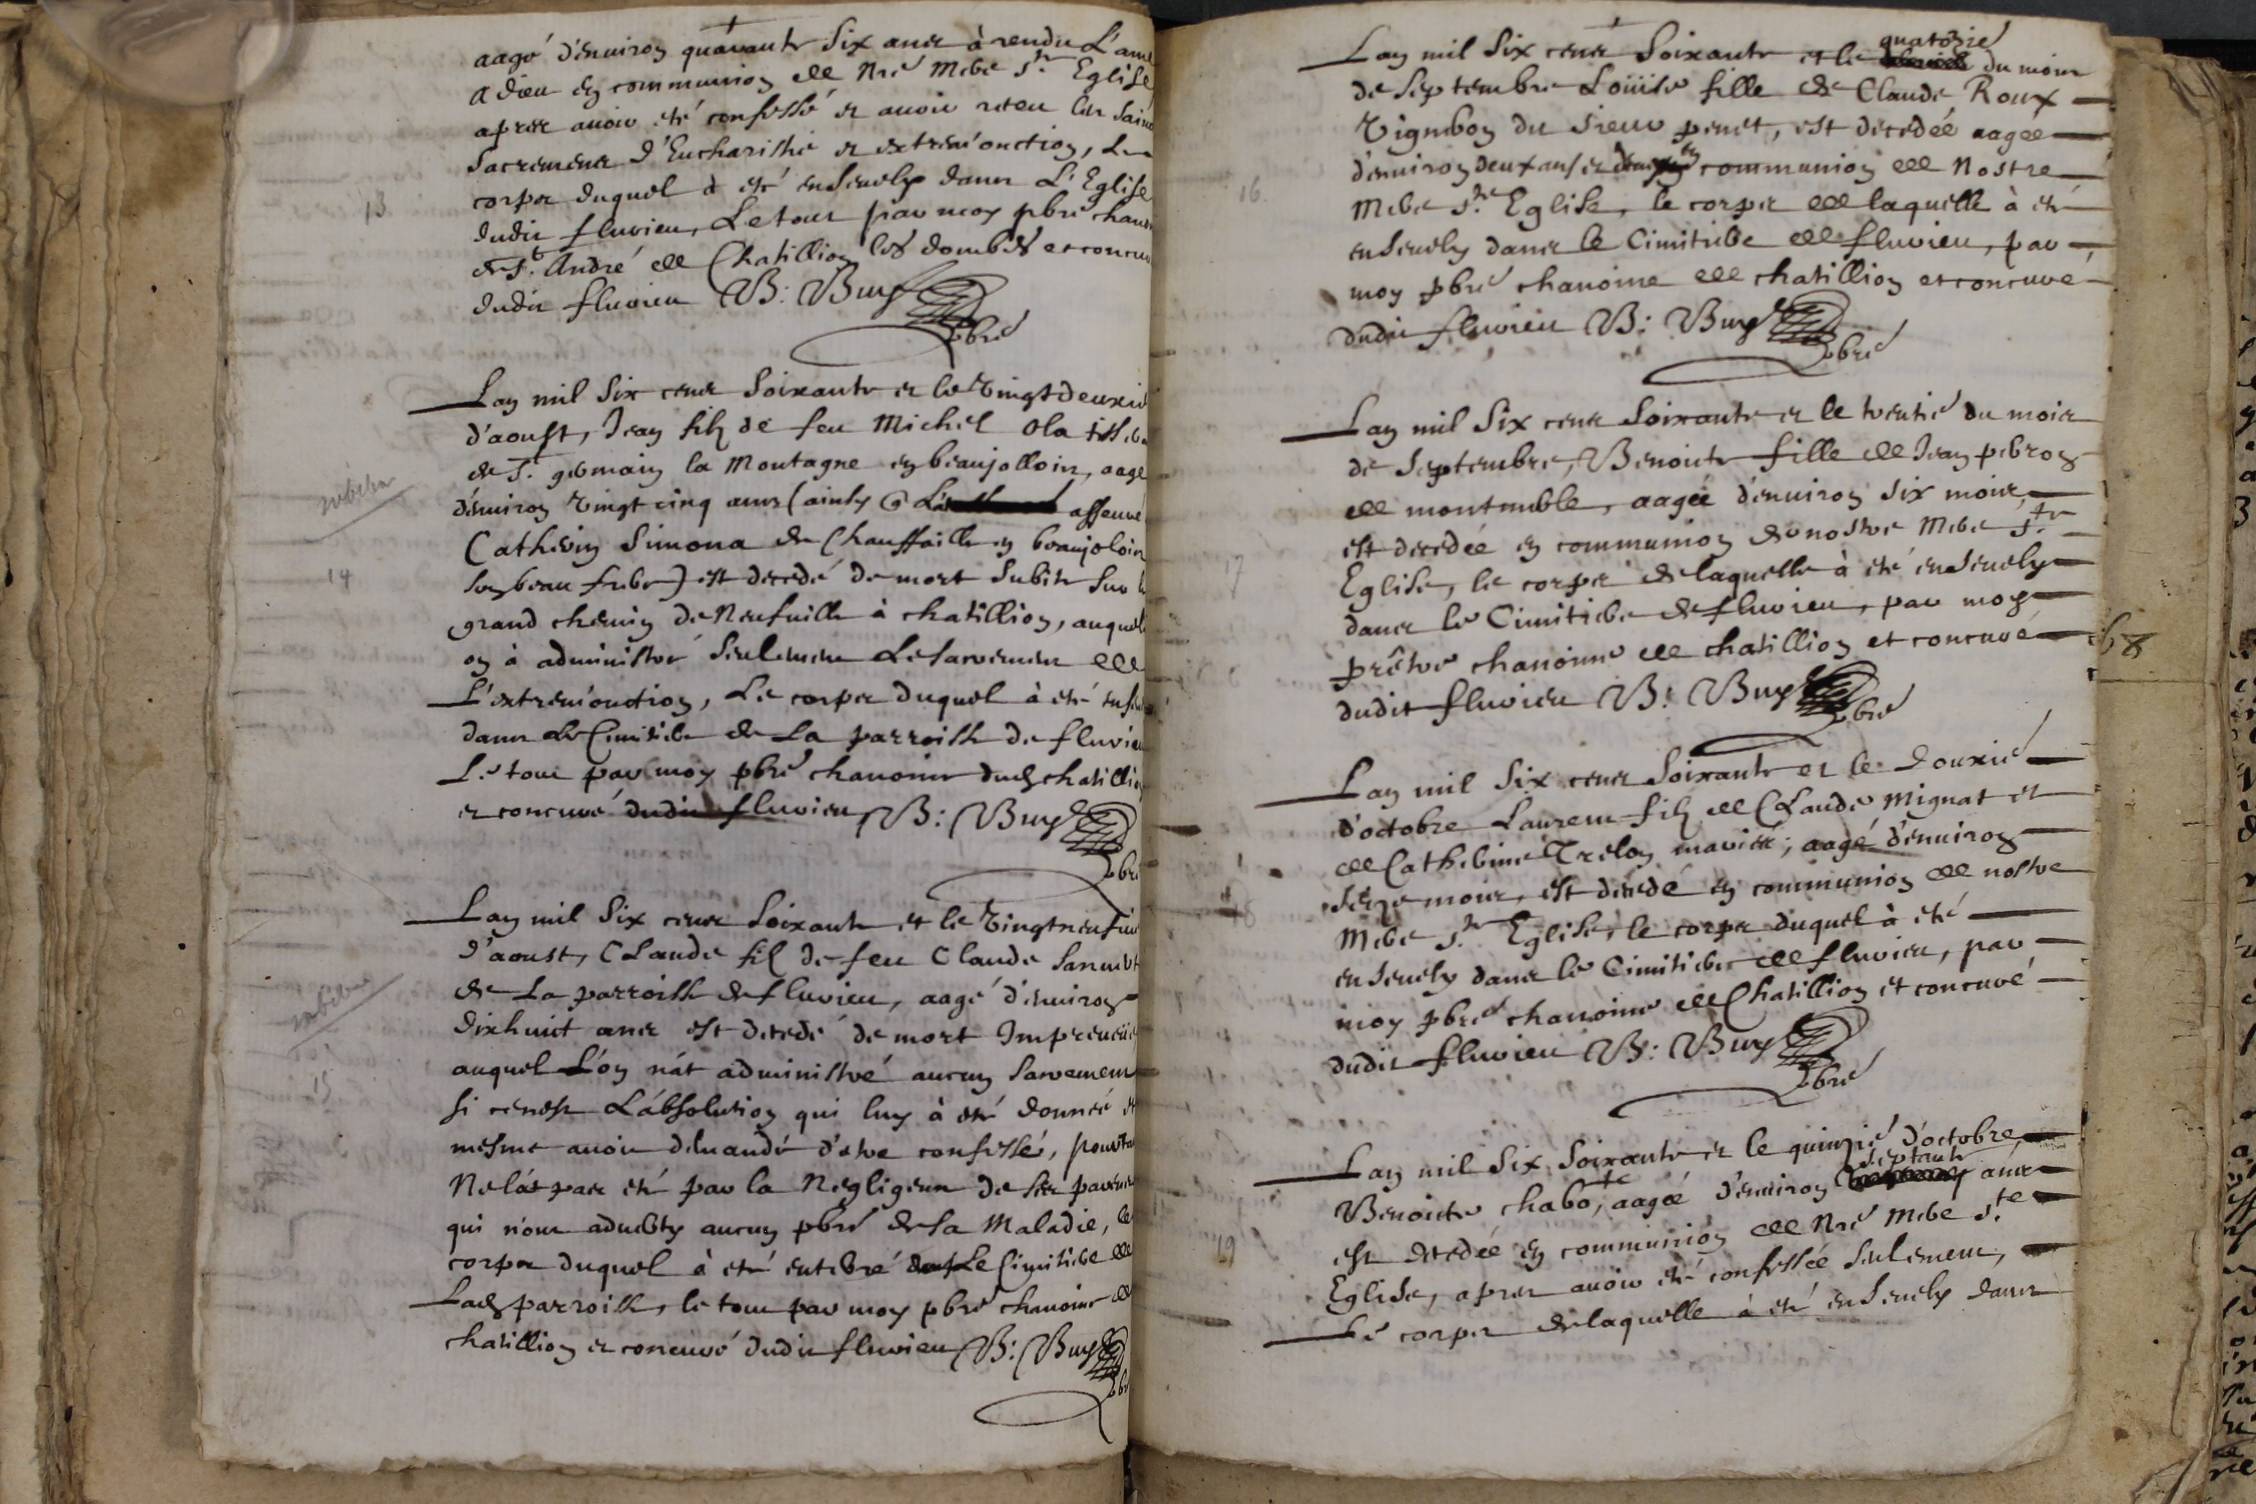 aagé d'enuiron quarante six ans à rendu L'ame
a dieu en communion de Nrē Mere Ste Eglise
apres auoir eté confessé et auoir receu les Saints
Sacremens d'Eucharistie et extreme'onction, Le
corps duquel à eté enseuely dans L'Eglise
13
dudit flurieu, Le tout par moy pbrē chan
de St. André de Chatillion les dombes et concu
dudit flurieu B: Buy
pbrē
Lan mil Six cens Soixante et le vingtdeuxie
d'aoust, Jean filz de feu Michel
de St. germain la Montagne en beaujollois, aagé
d'enuiron vingt cinq ans (ainsy
asseuré
Catherin Simona de Chauffaille en beaujolois
14
son beau frere) est decedé de mort Subite Sur le
grand chemin de Neufuille à chatillion, auquel
on à administré Seulement Le Sacrement de
L'extreme'onction, Le corps duquel à eté
dans Le Cimitiere de La parroisse de flurieu
Le tout par moy pbrē chanoine dud chatillion
et concuré dudit flurieu B: Buy
pbrē
Lan mil Six cens Soixante et le vingtneufuie
d'aoust, CLaude fil de feu Claude
de La parroisse de flurieu, aagé d'enuiron
dixhuict ans est decedé de mort Impreueüe
auquel L'on n'at administré aucun Sacrement
15
si cenest L'absolution qui luy à eté donneé et
mesme auoir demandé d'etre confessé, pourtant
Ne l'as pas eté par la Negligence de ses parens
qui n'ont aduerty aucun pbrē de sa Maladie, le
corps duquel à eté enterré dans Le Cimitiere de
Lad parroisse, le tout par moy pbrē chanoine de
chatillion et concuré dudit flurieu B: Buy
pbrē
quatorzie
Lan mil Six cens Soixante et le du mois
de Septembre Loüise fille de Claude Roux
Vigneron du Sieur penet, est decedée aagée
en
d'enuiron deux ans et communion de Nostre
16
Mere Ste Eglise, le corps de laquelle à eté
enseuely dans le Cimitiere de flurieu, par
moy pbrē chanoine de chatillion et concuré
dudit flurieu B: Buy
pbrē
Lan mil Six cens Soixante et le trentie du mois
de Septembre, Benoite fille de Jean peron
de montauble, aagée d'enuiron Six mois
est decedée en communion de nostre Mere Ste
17
Eglise, le corps de laquelle à eté enseuely
dans le Cimitiere de flurieu, par moy
prêtre chanoine de chatillion et concuré
68
dudit flurieu B: Buy
pbrē
Lan mil Six cens Soixante et le douxié
d'octobre Laurent filz de CLaude Mignat et
de Catherine Trelon mariés, aagé d'enuiron
Seize mois, est decedé en communion de nostre
18
Mere Ste Eglise, le corps duquel à eté
enseuely dans le Cimitiere de flurieu, par
moy pbrē chanoine de Chatillion et concuré
dudit flurieu B: Buy
pbrē
Lan mil Six Soixante et le quinzié d'octobre
septante
Benoite chabo, aagée d'enuiron ans
est decedée en communion de Nrē Mere Ste
19
Eglise, apres auoir eté confessée Seulement,
Le corps de laquelle à eté enseuely dans